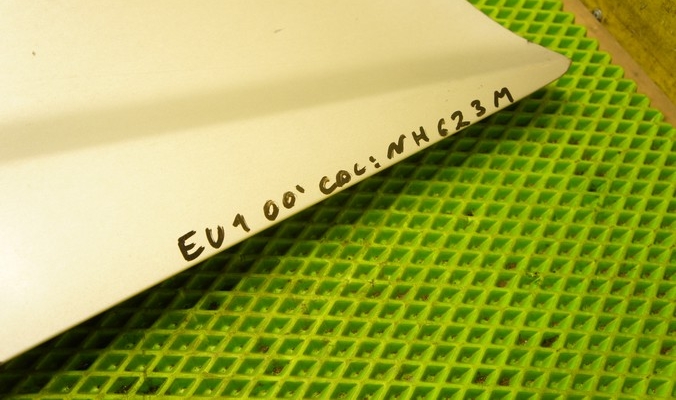 EU1 00' COL: NH623M